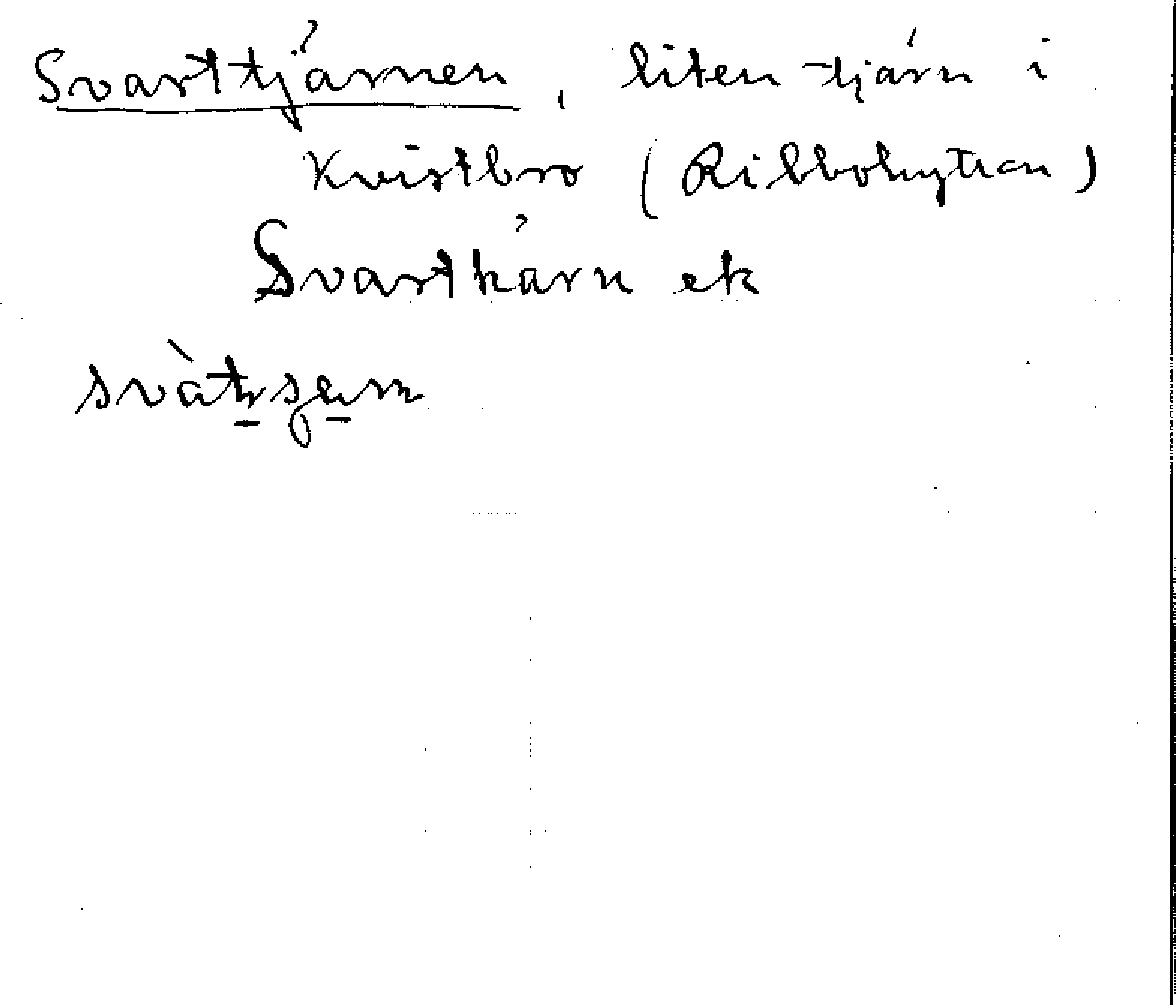 Svarttjärnen, liten tjärn i
Kvistbro (Ribbohyttan)
Svartkärn ek